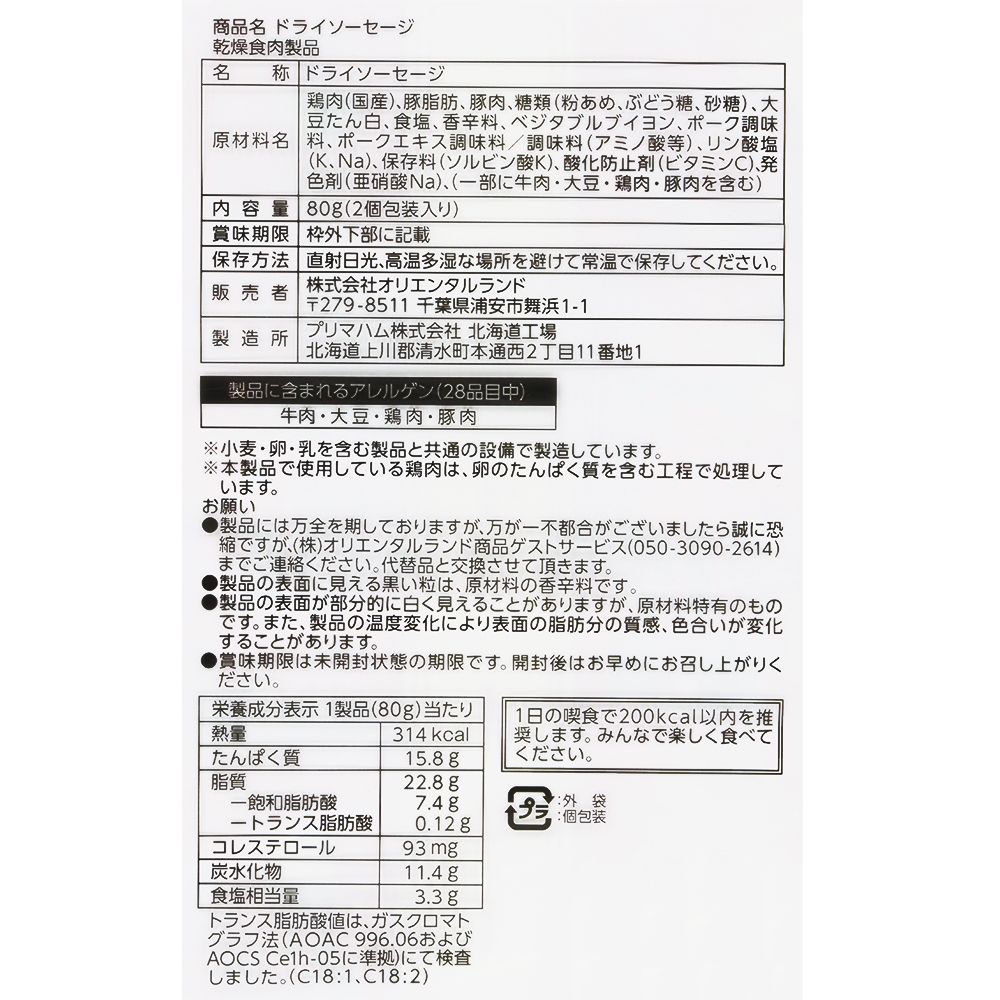 商品名 ドライソーセージ
乾燥食肉製品
名 称 ドライソーセージ
原材料名 鶏肉(国産)、豚脂肪、豚肉、糖類(粉あめ、ぶどう糖、砂糖)、大
豆たん白、食塩、香辛料、ベジタブルブイヨン、ポーク調味
料、ポークエキス調味料／調味料(アミノ酸等)、リン酸塩
(K、Na)、保存料(ソルビン酸K)、酸化防止剤(ビタミンC)、発
色剤(亜硝酸Na)、(一部に牛肉・大豆・鶏肉・豚肉を含む)
内容量 80g(2個包装入り)
賞味期限 枠外下部に記載
保存方法 直射日光、高温多湿な場所を避けて常温で保存してください。
販売者 株式会社オリエンタルランド
〒279-8511 千葉県浦安市舞浜1-1
製造所 プリマハム株式会社 北海道工場
北海道上川郡清水町本通西2丁目11番地1
製品に含まれるアレルゲン(28品目中)
牛肉・大豆・鶏肉・豚肉
※小麦・卵・乳を含む製品と共通の設備で製造しています。
※本製品で使用している鶏肉は、卵のたんぱく質を含む工程で処理して
います。
お願い
●製品には万全を期しておりますが、万が一不都合がございましたら誠に恐
縮ですが、(株)オリエンタルランド商品ゲストサービス(050-3090-2614)
までご連絡ください。代替品と交換させて頂きます。
●製品の表面に見える黒い粒は、原材料の香辛料です。
●製品の表面が部分的に白く見えることがありますが、原材料特有のもの
です。また、製品の温度変化により表面の脂肪分の質感、色合いが変化
することがあります。
●賞味期限は未開封状態の期限です。開封後はお早めにお召し上がりく
ださい。
栄養成分表示 1製品(80g)当たり
熱量 314kcal
たんぱく質 15.8g
脂質 22.8g
－飽和脂肪酸 7.4g
－トランス脂肪酸 0.12g
コレステロール 93mg
炭水化物 11.4g
食塩相当量 3.3g
トランス脂肪酸値は、ガスクロマト
グラフ法(AOAC 996.06および
AOCS Ce1h-05に準拠)にて検査
しました。(C18:1、C18:2)
1日の喫食で200kcal以内を推
奨します。みんなで楽しく食べて
ください。
プラ :外 袋
:個包装